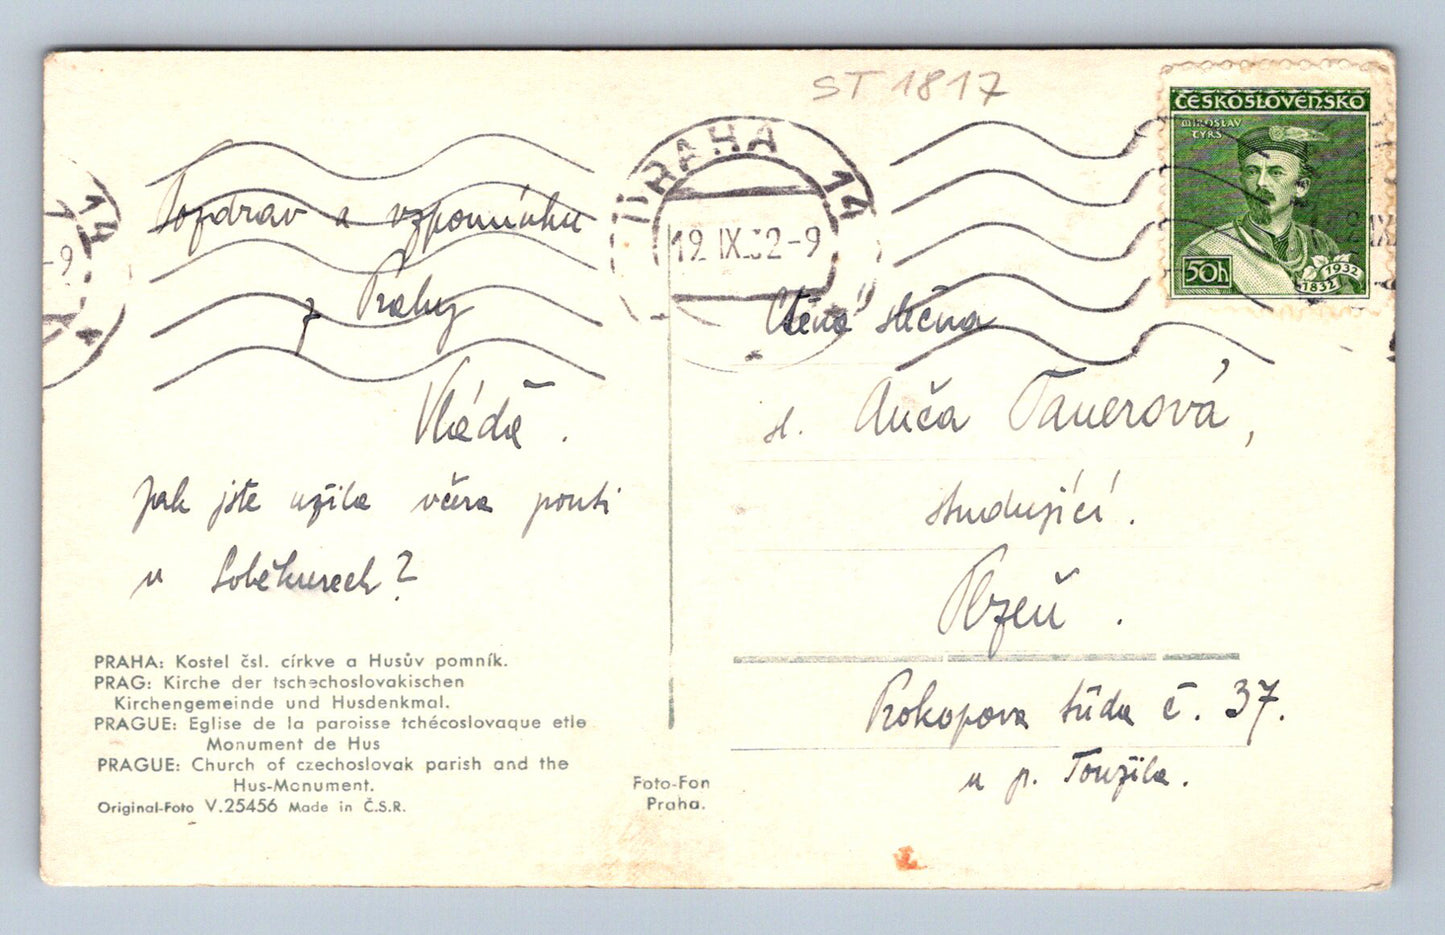 ST 1817
ČESKOSLOVENSKO
MIROSLAV
TYRŠ
50h
1932
1832
PRAHA 14
19.IX.32-9
Pozdrav a vzpomínku
z Prahy
Vláďa.
Jak jste užila včera pouti
v Soběkurech?
PRAHA: Kostel čsl. církve a Husův pomník.
PRAG: Kirche der tschechoslovakischen
Kirchengemeinde und Husdenkmal.
PRAGUE: Eglise de la paroisse tchécoslovaque etle
Monument de Hus
PRAGUE: Church of czechoslovak parish and the
Hus-Monument.
Original-Foto V.25456 Made in Č.S.R.
Foto-Fon
Praha.
Ctěná slečna
sl. Anča Tauerová,
studující.
Plzeň.
Prokopova třída č. 37.
u p. Toužila.